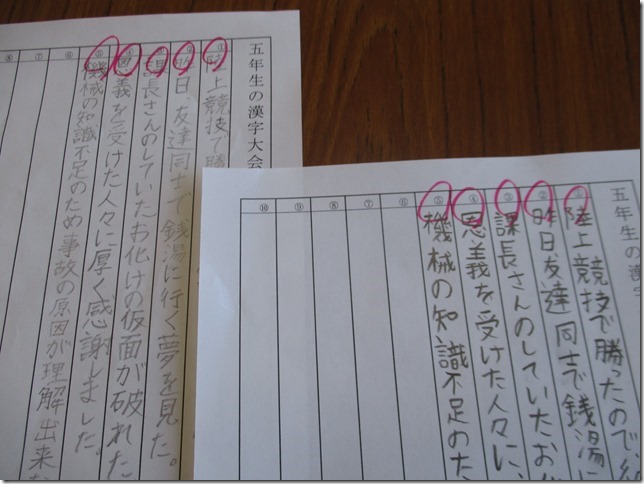 五年生の漢字大会
①
陸上競技で勝
②
昨日友達同士で銭湯に行く夢を見た。
③
課長さんのしていたお化けの仮面が破れた
④
恩義を受けた人々に厚く感謝しました。
⑤
機械の知識不足のため事故の原因が理解出来な
⑥
⑦
⑧
五年生の漢
①
陸上競技で勝ったので
②
昨日友達同士で銭湯に
③
課長さんのしていたお化
④
恩義を受けた人々に、
⑤
機械の知識不足のた
⑥
⑦
⑧
⑨
⑩